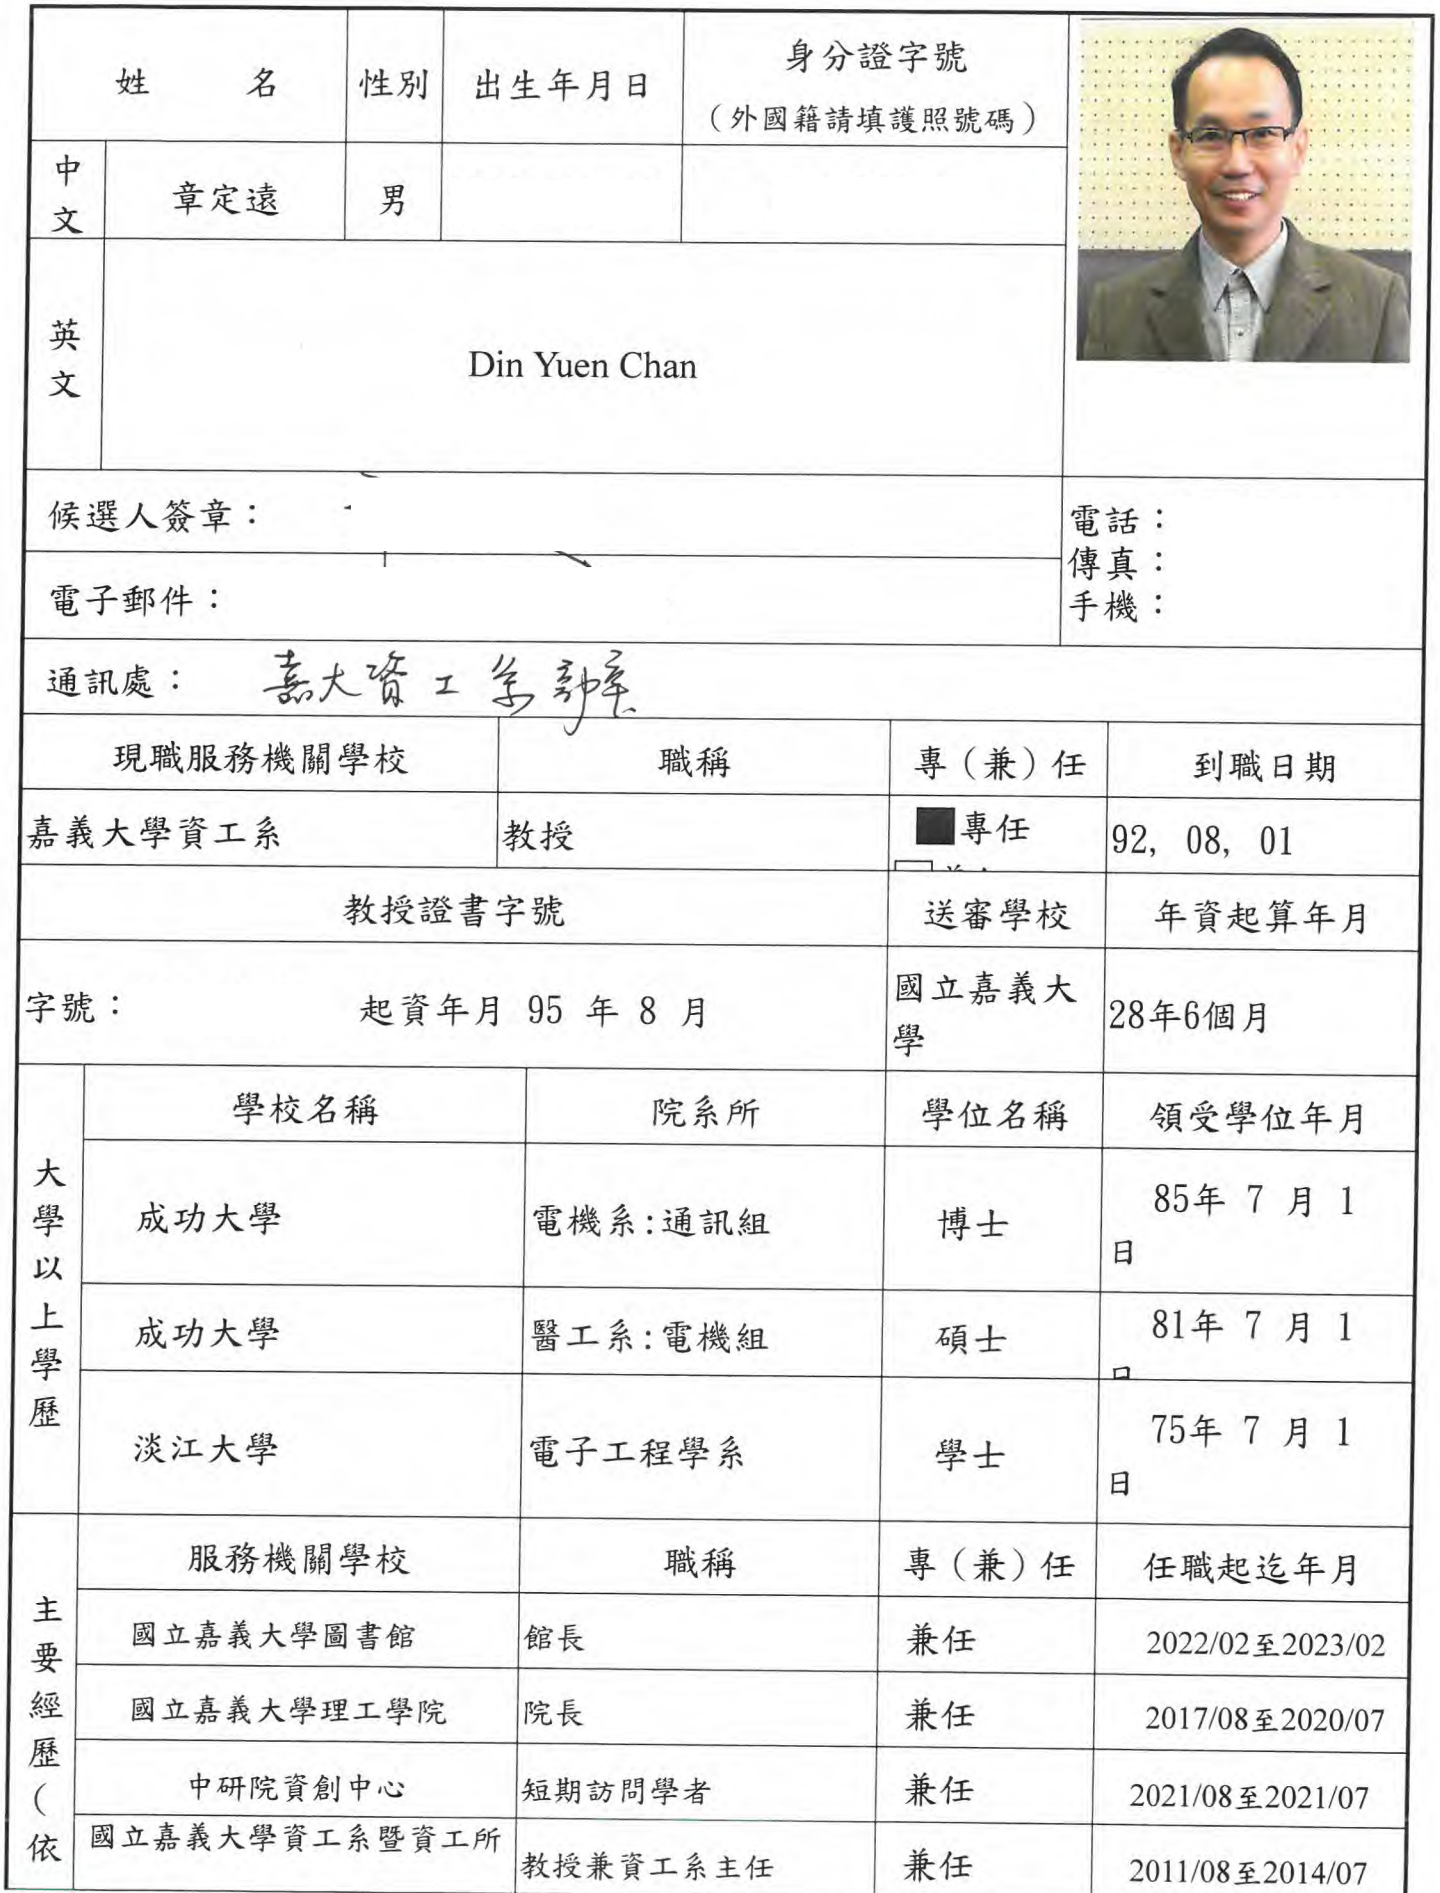 姓　　名　性別　出生年月日　身分證字號
（外國籍請填護照號碼）
中文　章定遠　男
英文　Din Yuen Chan
候選人簽章：
電話：
傳真：
手機：
電子郵件：
通訊處：　嘉大資工系
現職服務機關學校　職稱　專（兼）任　到職日期
嘉義大學資工系　教授　■專任　92, 08, 01
教授證書字號　送審學校　年資起算年月
字號：　起資年月 95 年 8 月　國立嘉義大學　28年6個月
大學以上學歷
學校名稱　院系所　學位名稱　領受學位年月
成功大學　電機系:通訊組　博士　85年 7 月 1日
成功大學　醫工系:電機組　碩士　81年 7 月 1
淡江大學　電子工程學系　學士　75年 7 月 1日
主要經歷（依
服務機關學校　職稱　專（兼）任　任職起迄年月
國立嘉義大學圖書館　館長　兼任　2022/02至2023/02
國立嘉義大學理工學院　院長　兼任　2017/08至2020/07
中研院資創中心　短期訪問學者　兼任　2021/08至2021/07
國立嘉義大學資工系暨資工所　教授兼資工系主任　兼任　2011/08至2014/07